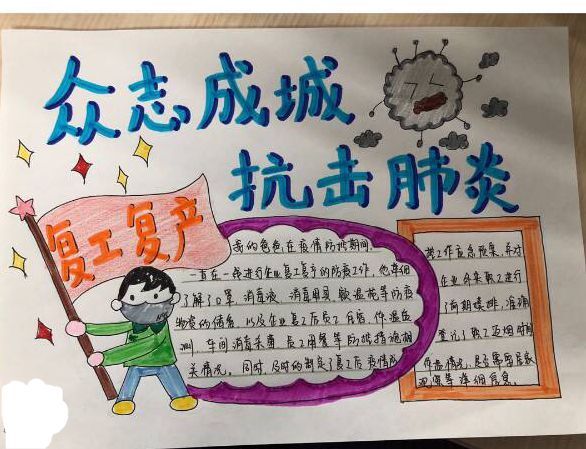 众志成城
抗击肺炎
复工复产
我的爸爸在疫情防控期间
一直在一线进行企业复工复产的防疫工作，他详细
了解口罩、消毒液、消毒用具、额温枪等防疫
物资的储备，以及企业复工后员工自居、体温监
测、车间消毒杀菌、员工用餐等防控措施相
关情况。同时，及时的制定了复工后疫情防
控工作应急预案，并对
企业外来职工进行
了前期摸排，准确
登记了职工返烟时间
作息情况、是否需要居家
观察等详细信息。